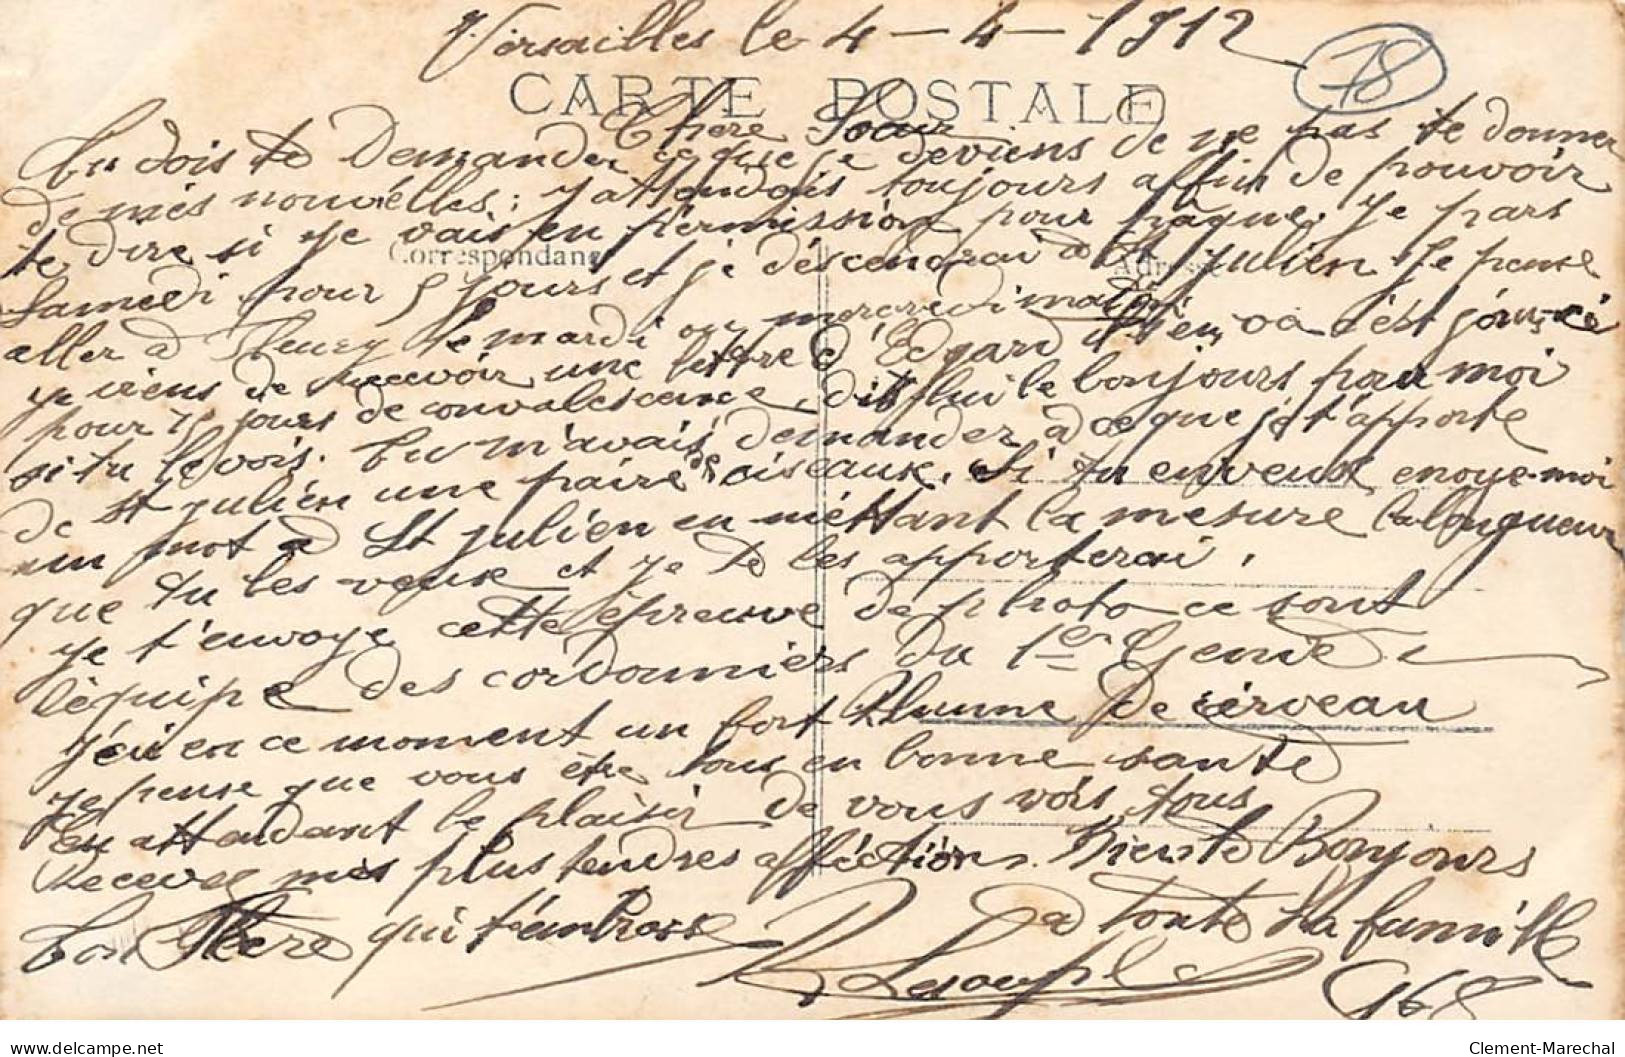 Versailles le 4-4-1912
78
CARTE POSTALE
Chere Soeur
tu dois te Demander ce que je deviens de ne pas te donner
de mes nouvelles; j'attendais toujours affin de pouvoir
te dire si je vais en permission pour pâque. Je pars
Correspondance
Adresse
Samedi pour 5 jours et je déscendrai à St julien Je pense
aller à Fleury le mardi ou mercredi matin
je viens de recevoir une lettre d'Edgard il s'en va c'est jours-ci
pour 75 jours de convalescence, dit lui le bonjours pour moi
si tu le vois. tu m'avais demander à ce que je t'apporte
de St julien une paire de ciseaux. Si tu en veux enoye-moi
un mot à St julien en méttant la mesure la longueur
que tu les veux et je te les apporterai.
je t'envoye cette épreuve de photo ce sont
l'équipe des cordonniers du 1er Genie
j'ai en ce moment un fort Rhume de cerveau
je pense que vous être tous en bonne santé
En attendant le plaisir de vous voir tous
Recevez mes plus tendres affection. Bonjours
ton Frere qui t'embrasse à toute la famille
968
Clement-Marechal